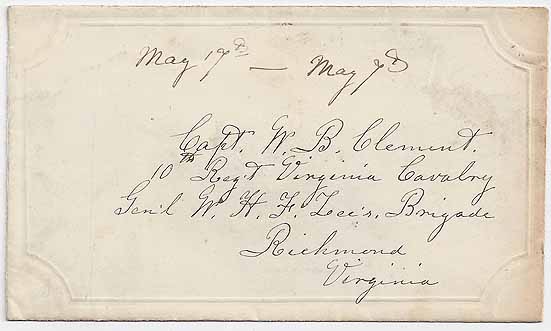 May 17th — May 7th
Capt. W. B. Clement.
10th Reg't Virginia Cavalry
Gen'l W. H. F. Lee's. Brigade
Richmond
Virginia